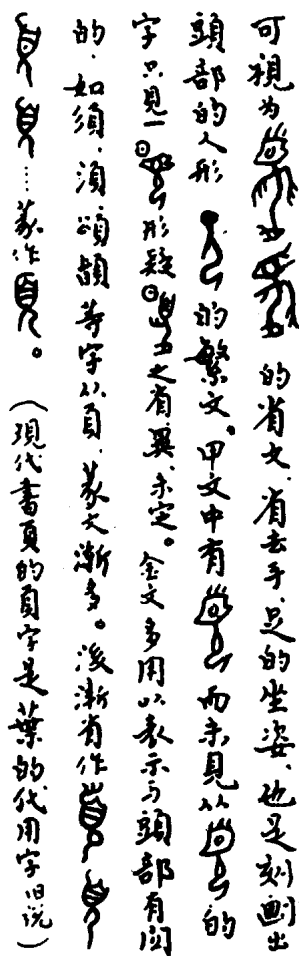 可視为 的省文,省去手、足的坐姿、也是刻劃出
頭部的人形 的繁文。甲文中有 而未見从 的
字只見一 形疑 之省異、未定。金文多用以表示与頭部有関
的.如須、湏、頌頡等字从頁、篆文漸多。後漸省作
……篆作 。(現代書頁的頁字是葉的代用字旧説)